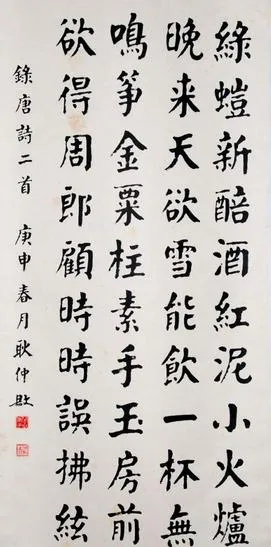 綠螘新醅酒紅泥小火爐
晚来天欲雪能飲一杯無
鳴箏金粟柱素手玉房前
欲得周郎顧時時誤拂絃
錄唐詩二首 庚申春月耿仲敭